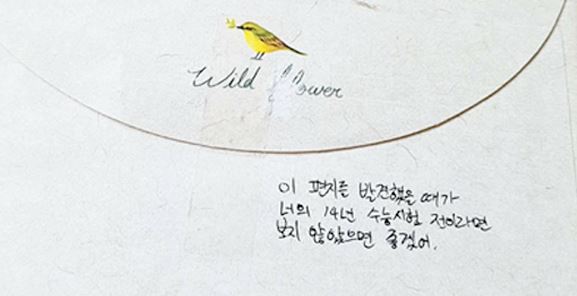 Wild flower
이 편지를 발견했을 때가
너의 14년 수능시험 전이라면
보지 않았으면 좋겠어.